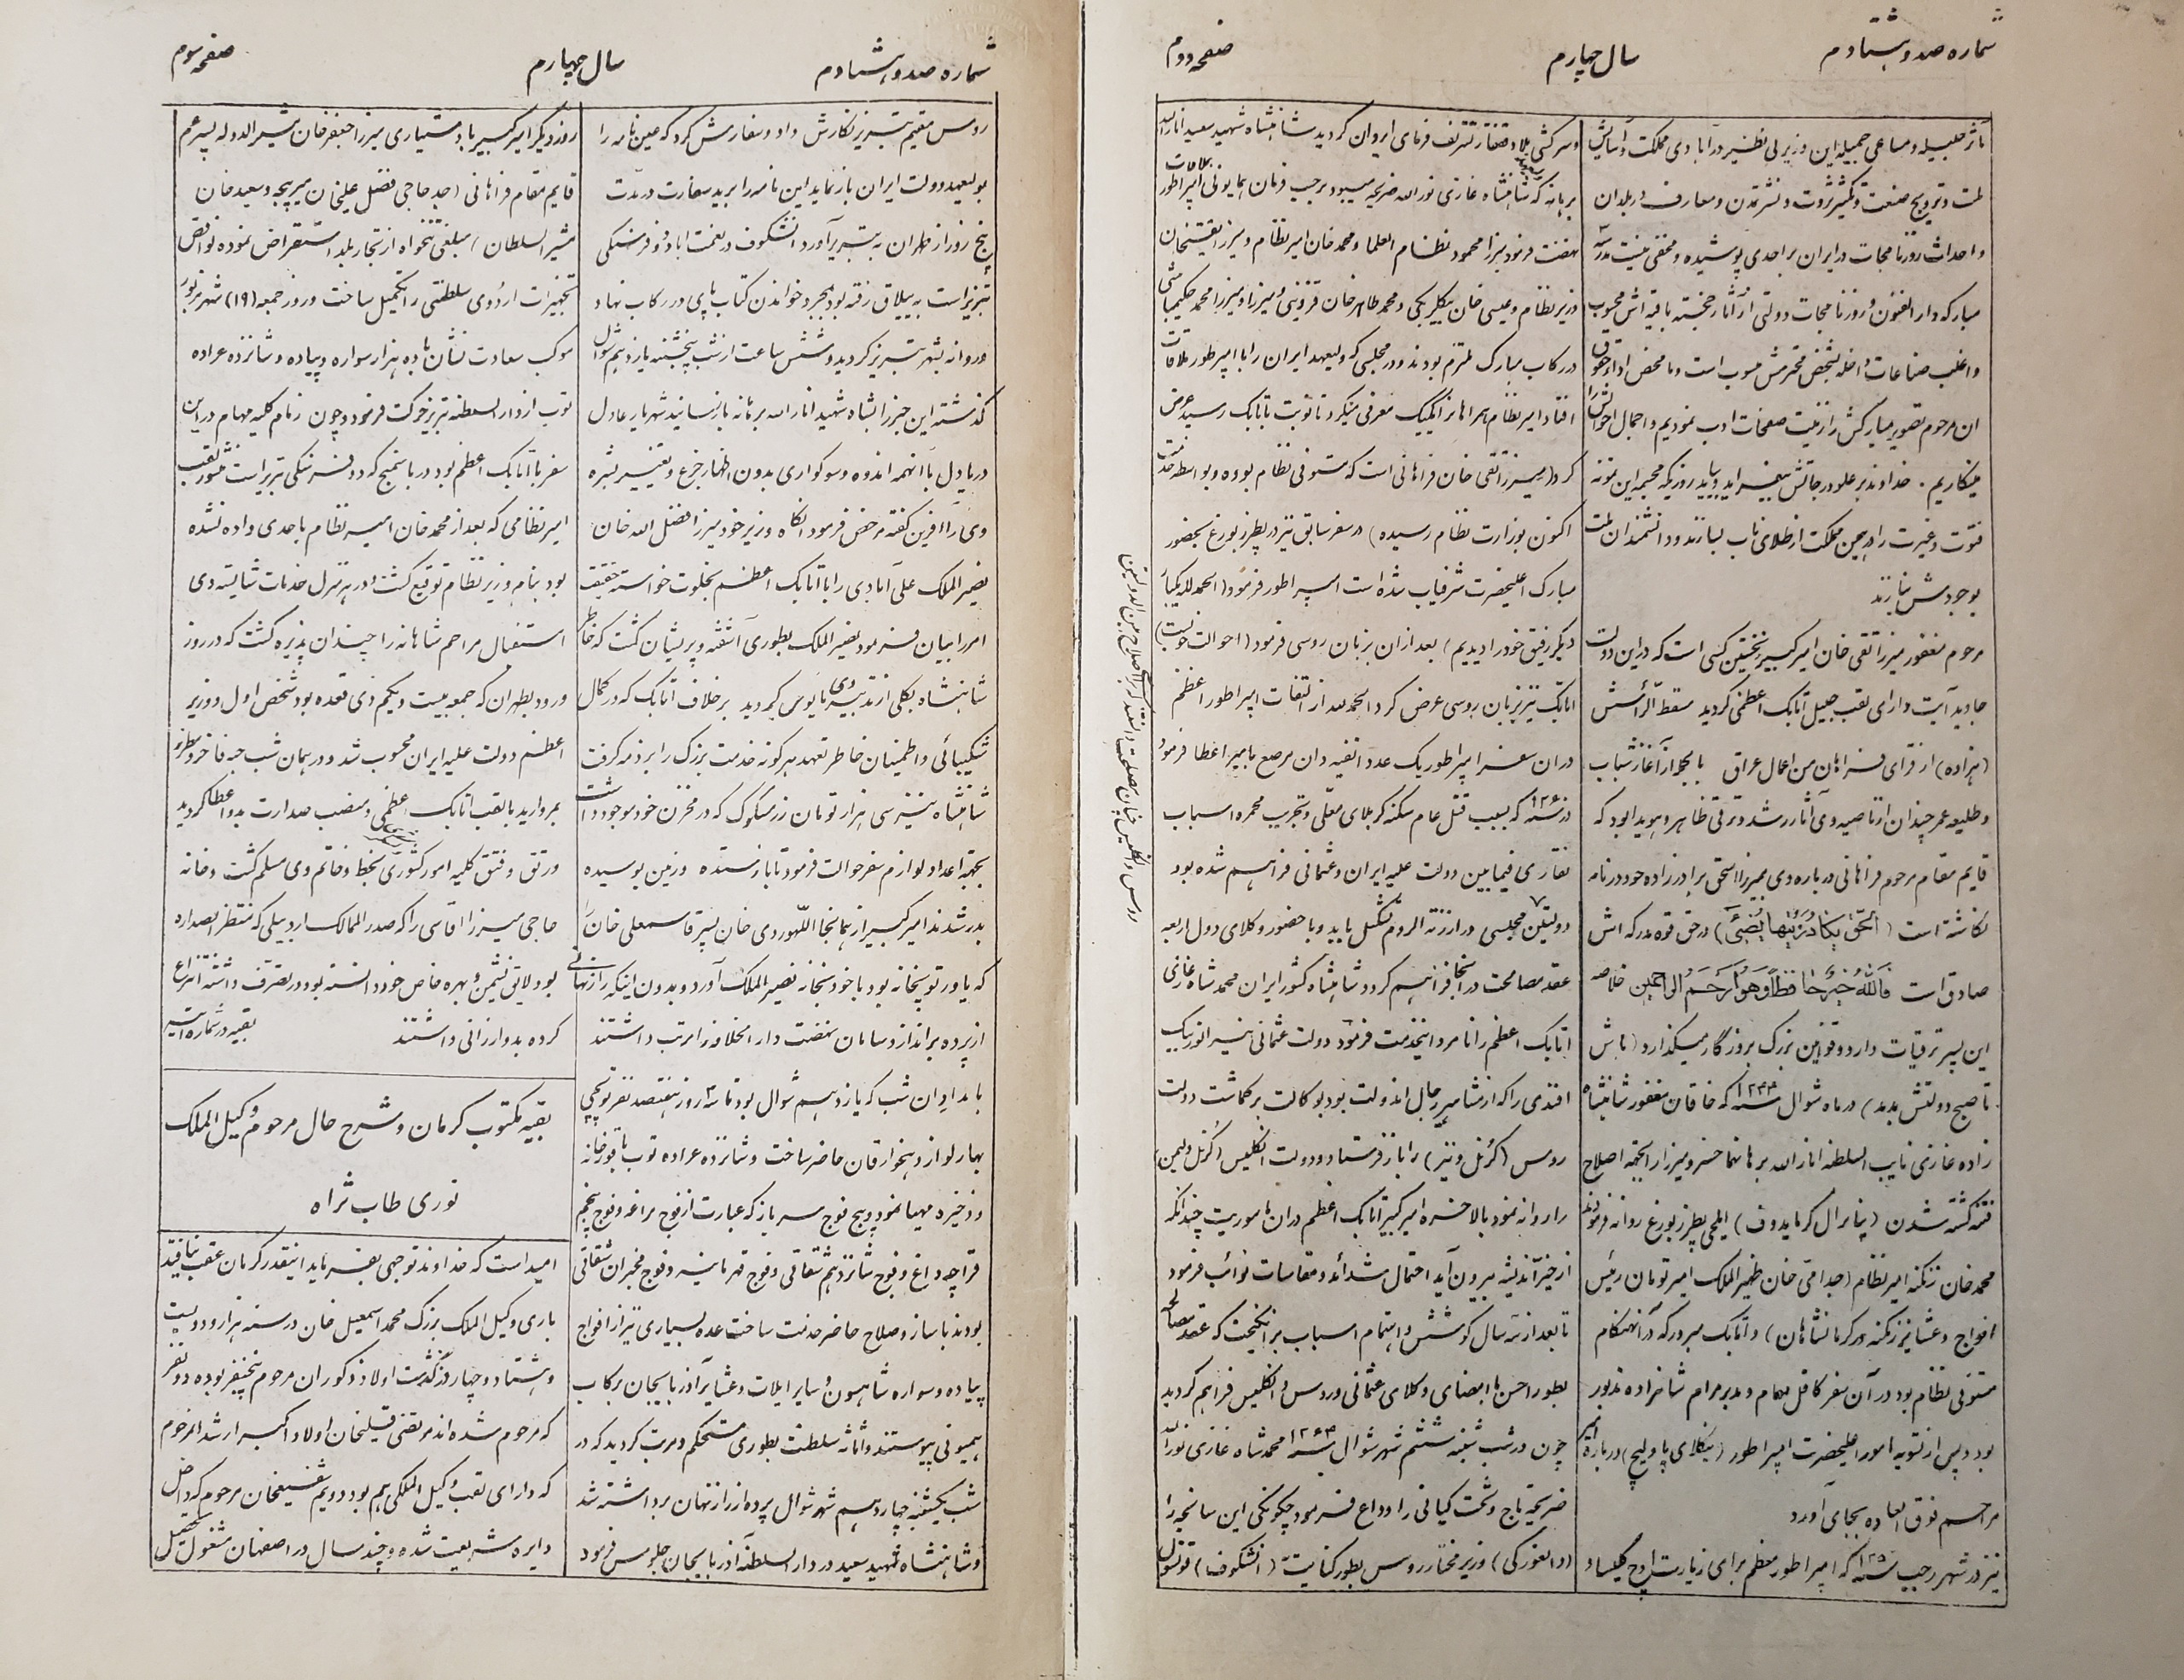 شماره صد و هشتادم
سال چهارم
صفحه دوم
مآثر جلیله و مساعی جمیلهٔ این وزیر بی نظیر در آبادی مملکت و آسایش
ملت و ترویج صنعت و تکثیر ثروت و نشر تمدن و معارف در بلدان
و احداث روزنامجات در ایران بر احدی پوشیده و مخفی نیست مدرسهٔ
مبارکه دار الفنون و روزنامجات دولتی از آثار خجسته باقیه اش محسوب
و اغلب صناعات داخله بشخص محترمش منسوب است و ما محض اداء حقوق
ان مرحوم تصویر مبارکش را زینت صفحات ادب نمودیم و اجمال احوالش را
مینگاریم . خداوند بر علو درجاتش بیفزاید و بیاید روزیکه مجسمه این نمونه
فتوت و غیرت را در همین مملکت از طلای ناب بسازند و دانشمندان ملت
بوجودش بنازند
مرحوم مغفور میرزا تقی خان امیر کبیر نخستین کسی است که در این دولت
جاوید آیت دارای لقب جمیل اتابک اعظمی گردید مسقط الرأسش
(هزاوه) از قرای فراهان من اعمال عراق بالجمله از آغاز شباب
و طلیعه عمر چندان از ناصیه وی آثار رشد و ترقی ظاهر و هویدا بود که
قایم مقام مرحوم فراهانی درباره وی بمیرزا اسحق برادرزاده خود در نامه
نگاشته است (الحق یکاد زیتها یضیئ) در حق قوه مدرکه اش
صادق است فالله خیر حافظا و هو ارحم الراحمین خلاصه
این پسر ترقیات دارد و قوانین بزرگ بروزگار میگذارد (باش
تا صبح دولتش بدمد) در ماه شوال سنه ۱۲۴۴ که خاقان مغفور شاهنشاه
زاده غازی نایب السلطنه انار الله برهانهما خسرو میرزا را بجهة اصلاح
فتنه کشته شدن (ینارال کربایدوف) ایلچی بپطرزبورغ روانه فرمودند
محمد خان زنگنه امیر نظام (جد امی خان ظهیر الملک امیر تومان رئیس
افواج و عشایر زنگنه و کرمانشاهان) و اتابک مبرور که در آنهنگام
مستوفی نظام بود در آن سفر کافل مهام و مدبر مرام شاهزاده مذبور
بود و پس از تسویه امور اعلیحضرت امپراطور (نیکلای پاولیچ) درباره امیر
مراسم فوق العاده بجای آورد
نیز در شهر رجب سنه ۱۲۵۳ که امپراطور معظم برای زیارت اوچ کلیسا و
و سرکشی بلاد قفقاز تشریف فرمای ایروان گردید شاهنشاه شهید سعید انار الله
برهانه که شاهنشاه غازی نور الله ضریحه میبود بر حسب فرمان همایونی بملاقات امپراطور
نهضت فرمود میرزا محمود نظام العلما و محمد خان امیر نظام و میرزا تقیخان
وزیر نظام و عیسی خان بیگلربیگی و محمد طاهر خان قزوینی و میرزا و میرزا محمد حکیمباشی
در رکاب مبارک ملتزم بودند و در مجلسی که ولیعهد ایران را با امپرطور ملاقات
افتاد امیر نظام همراهان را یکیک معرفی میکرد تا نوبت باتابک رسید عرض
کرد (میرزا تقی خان فراهانی است که مستوفی نظام بوده و بواسطه خدمت
اکنون بوزارت نظام رسیده) در سفر سابق نیز در پطرزبورغ بحضور
مبارک اعلیحضرت شرفیاب شده است امپراطور فرمود (الحمد لله یکبار
دیگر رفیق خود را دیدیم) بعد از ان بزبان روسی فرمود (احوالت خوبست)
اتابک نیز بزبان روسی عرض کرد الحمد لله از التفات امپراطور اعظم
در ان سفر امپراطور یک عدد انفیه دان مرصع بامیر اعطا فرمود
در سنه ۱۲۶۰ که بسبب قتل عام سکنه کربلای معلی و تخریب محمره اسباب
نقاری فیمابین دولت علیه ایران و عثمانی فراهم شده بود
دولتین مجلسی در ارزنة الروم تشکیل یابد و با حضور وکلای دول اربعه
عقد مصالحت در آنجا فراهم گردد شاهنشاه کشور ایران محمد شاه غازی
اتابک اعظم را نامزد اینخدمت فرمود دولت عثمانی نیز انور بیک
افندی را که از مشاهیر رجال اندولت بود بوکالت برگماشت دولت
روس (کرنل دنیز) را باز فرستاد و دولت انگلیس (کرنل ولیمس)
را روانه نمود بالاخره امیر کبیر اتابک اعظم در ان ماموریت چندانکه
از حیز اندیشه بیرون آید احتمال شدائد و مقاسات نوائب فرمود
تا بعد از سه سال کوشش و اهتمام اسباب برانگیخت که عقد مصالحه
بطور احسن با امضای وکلای عثمانی و روس و انگلیس فراهم گردید
چون در شب شنبه ششم شهر شوال سنه ۱۲۶۴ محمد شاه غازی نور الله
ضریحه تاج و تخت کیانی را وداع فرمود چگونگی این سانحه را
(دالغورکی) وزیر مختار روس بطور کنایت (انشکوف) قونسول
روس و انگلیس چنان مصلحت دانستند که برای اصلاح بین الدولتین
شماره صد و هشتادم
سال چهارم
صفحه سوم
روس مقیم تبریز نگارش داد و سفارش کرد که عین نامه را
بولیعهد دولت ایران باز نماید این نامه را برید سفارت در مدت
پنج روز از طهران به تبریز آورد انشکوف در نعمت اباد دو فرسنگی
تبریز است به ییلاق رفته بود بمجرد خواندن کتاب پای در رکاب نهاد
و روانه شهر تبریز گردید و شش ساعت از شب پنجشنبه یازدهم شوال
گذشته این خبر را بشاه شهید انار الله برهانه باز رسانید شهریار عادل
دریا دل با انهمه اندوه و سوگواری بدون اظهار جزع و تغییر بشره
وی را آفرین گفته مرخص فرمود انگاه وزیر خود میرزا فضل الله خان
نصیر الملک علی آبادی را با اتابک اعظم بخلوت خواسته حقیقت
امر را بیان فرمود نصیر الملک بطوری آشفته و پریشان گشت که خاطر
شاهنشاه بکلی از تدبیر وی مایوس گردید بر خلاف اتابک که در کمال
شکیبائی و اطمینان خاطر تعهد هر گونه خدمت بزرگ را بر ذمه گرفت
شاهنشاه نیز سی هزار تومان زر مسکوک که در مخزن خود موجود داشت
بجهة اعداد لوازم سفر حوالت فرمود تا باز ستده و زمین بوسیده
بدر شدند امیر کبیر از همانجا اللهوردی خان پسر قاسمعلی خان را
که یاور توپخانه بود با خود بخانه نصیر الملک آورد و بدون اینکه راز نهانی
از پرده براندازد سامان نهضت دار الخلافه را مرتب داشتند
بامدادان شب که یازدهم شوال بود تا سه روز هفتصد نفر توپچی
بهارلو از دهخوارقان حاضر ساخت و شانزده عراده توپ با قورخانه
و ذخیره مهیا نمود و پنج فوج سرباز که عبارت از فوج مراغه و فوج پنجم
قراچه داغ و فوج شانزدهم شقاقی و فوج قهرمانیه و فوج مخبران شقاقی
بودند با ساز و صلاح حاضر خدمت ساخت عده بسیاری نیز از افواج
پیاده و سواره شاهسون و سایر ایلات و عشایر آذربایجان برکاب
همیونی پیوستند و اثاثه سلطنت بطوری مستحکم و مرتب گردید که در
شب یکشنبه چهاردهم شهر شوال پرده از راز نهان برداشته شد
و شاهنشاه شهید سعید در دار السلطنه آذربایجان جلوس فرمود
روز دیگر امیر کبیر با دستیاری میرزا جعفر خان مشیر الدوله پسر عم
قایم مقام فراهانی (جد حاجی فضل علیخان میرپنجه و سعید خان
مشیر السلطان) مبلغی تنخواه از تجار بلد استقراض نموده نواقص
تجهیزات اردوی سلطنتی را تکمیل ساخت و روز جمعه (۱۹) شهر مزبور
موکب سعادت نشان با ده هزار سواره و پیاده و شانزده عراده
توپ از دار السلطنه تبریز حرکت فرمود و چون زمام کلیه مهام در این
سفر با اتابک اعظم بود در باسمنج که دو فرسنگی تبریز است منشور لقب
امیر نظامی که بعد از محمد خان امیر نظام باحدی داده نشده
بود بنام وزیر نظام توقیع گشت و در هر منزل خدمات شایسته وی
استقبال مراحم شاهانه را چندان پذیره گشت که در روز
ورود بطهران که جمعه بیست و یکم ذی قعده بود شخص اول و وزیر
اعظم دولت علیه ایران محسوب شد و در همان شب جبه فاخر مطرز
بمروارید با لقب اتابک اعظمی و منصب صدارت بدو اعطا گردید
و رتق و فتق کلیه امور کشوری بخط و خاتم وی مسلم گشت و خانه
حاجی میرزا آقاسی را که صدر الممالک اردبیلی که منتظر الصداره
بود و لایق نشیمن و بهره خاص خود دانسته بود و در تصرف داشته انتزاع
کرده بدو ارزانی داشتند
بقیه در شماره آتیه
بقیه مکتوب کرمان و شرح حال مرحوم وکیل الملک
نوری طاب ثراه
امید است که خداوند توجهی بفرماید اینقدر کرمان عقب نیافتد
باری وکیل الملک بزرگ محمد اسمعیل خان در سنه هزار و دویست
و هشتاد و چهار درگذشت اولاد ذکور ان مرحوم پنجنفر بوده دو نفر
که مرحوم شده اند مرتضی قلیخان اولاد اکبر ارشد انمرحوم
که دارای لقب وکیل الملکی هم بود دویم شفیعخان مرحوم که داخل
دایره شریعت شده و چند سال در اصفهان مشغول تحصیل